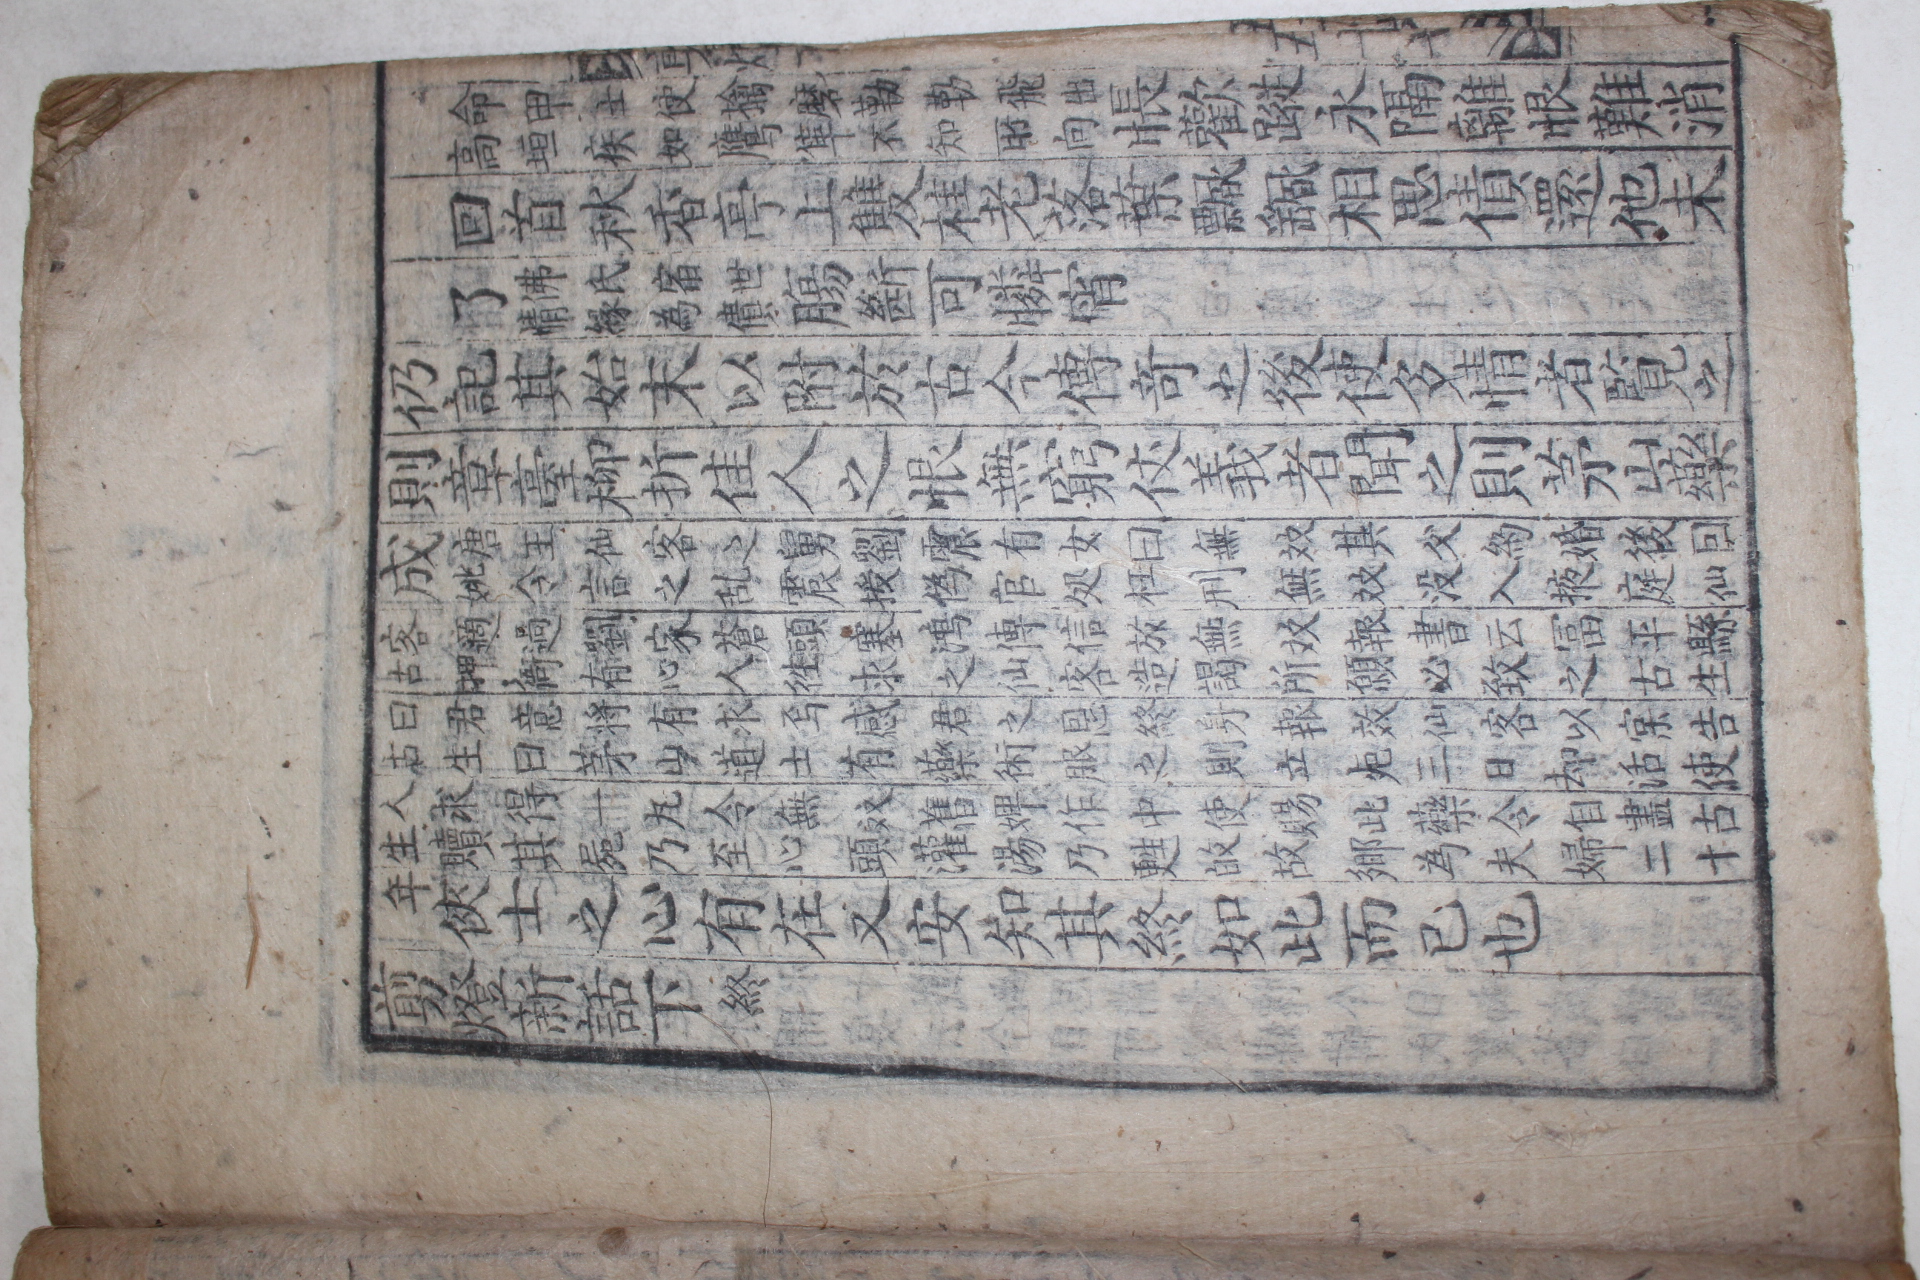 命甲士使擒磨勒勒飛出
高垣疾如鷹隼不知所向
悵歡蹤永隔離恨難消
回首秋香亭上雙桂老落葉飄飖相思債還他未
了
佛氏宿世
情緣為債
腸斷可憐宵
仍記其始末以附於古今傳奇之後使多情者覽之
則章臺柳折佳人之恨無窮仗義者聞之則茅山藥
成
唐王仙客之舅劉震有女曰無效其父約婚後回
姚令言之乱震授偽官処枉刑無效没入掖庭仙
客適過劉家蒼頭塞鴻傳信放無效報書云冨平縣
古押衙有心人徃求之仙客造謁所願必致之古生
曰君意將有求焉感君之恩終身報效仙客以寀告
古生曰茅山道士有藥術服之則立死三日却活使
人求得一丸令無效舊婢作中使賜此藥令自盡古
生贖其屍乃至心頭灌湯乃甦故鄉為夫婦二十
年
俠士之心有在又安知其終如此而已也
剪燈新話下 終